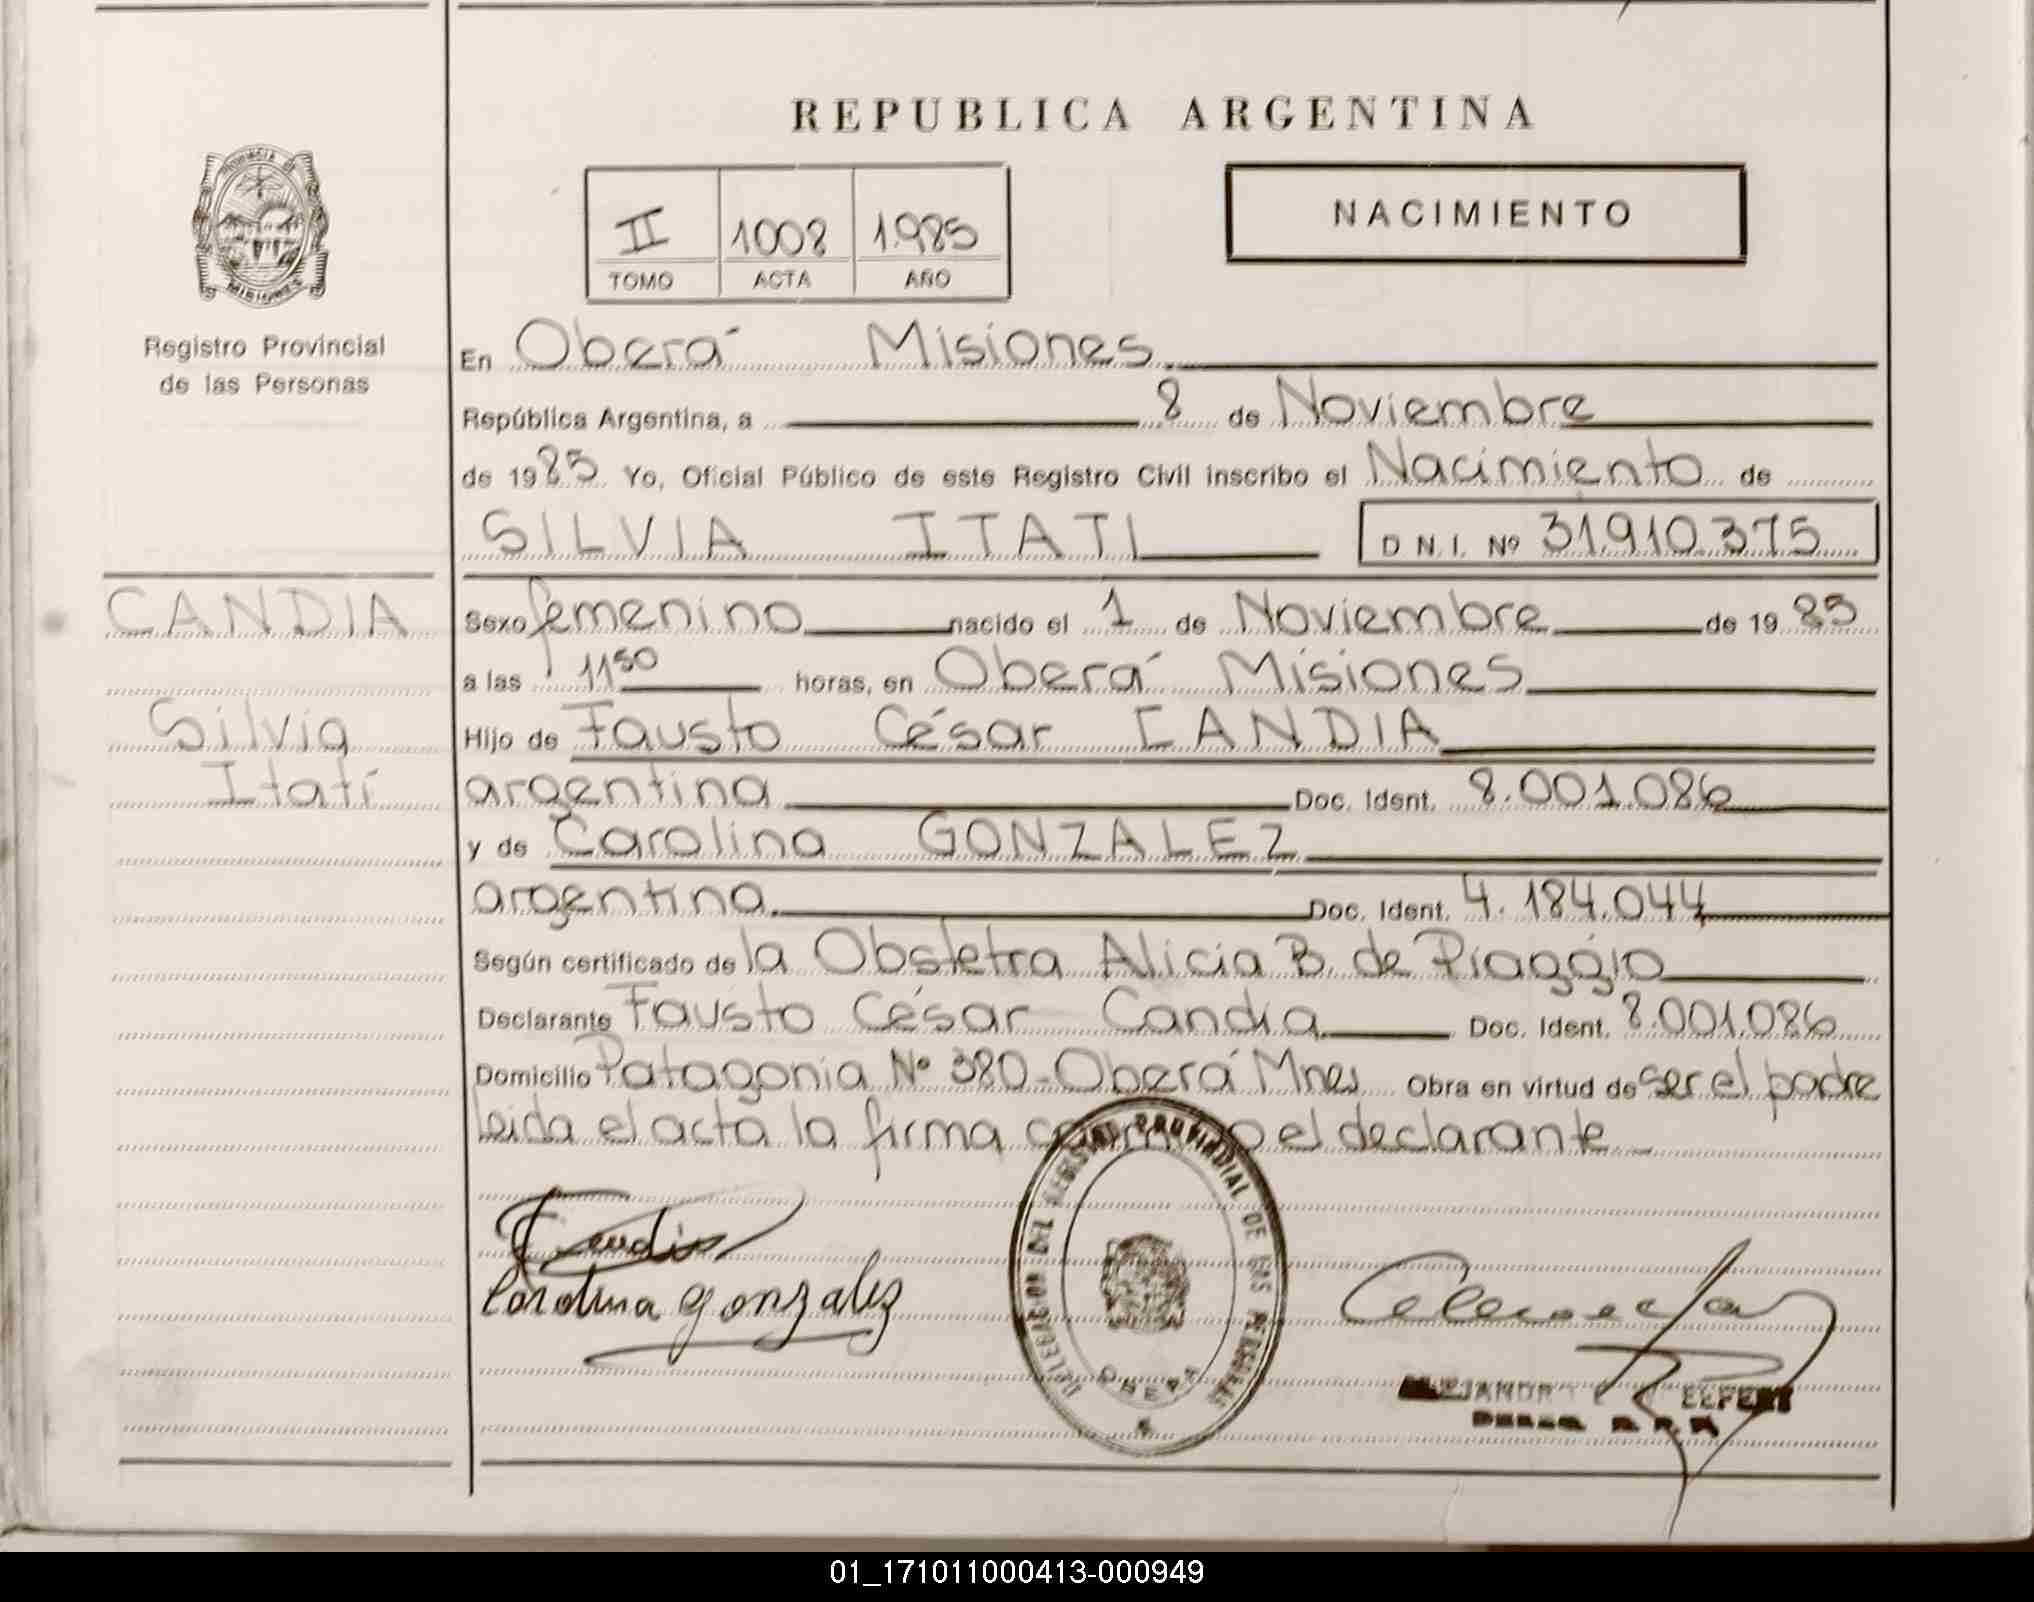 REPUBLICA ARGENTINA
PROVINCIA DE
MISIONES
Registro Provincial
de las Personas
II 1008 1.985
TOMO ACTA AÑO
NACIMIENTO
En Oberá Misiones
República Argentina, a 8 de Noviembre
de 1985 Yo, Oficial Público de este Registro Civil inscribo el Nacimiento de
SILVIA ITATI D N.I. Nº 31.910.375
CANDIA
Silvia
Itatí
Sexo femenino nacido el 1 de Noviembre de 1985
a las 11 50 horas, en Oberá Misiones
Hijo de Fausto César CANDIA
argentina Doc. Ident. 8.001.086
y de Carolina GONZALEZ
argentina. Doc. Ident. 4.184.044
Según certificado de la Obstetra Alicia B. de Piaggio
Declarante Fausto César Candia Doc. Ident. 8.001.086
Domicilio Patagonia Nº 380-Oberá Mnes Obra en virtud de ser el padre
leida el acta la firma conmigo el declarante
Candia
Carolina Gonzalez
DELEGACION DEL REGISTRO PROVINCIAL DE LAS PERSONAS
OBERA
01_171011000413-000949